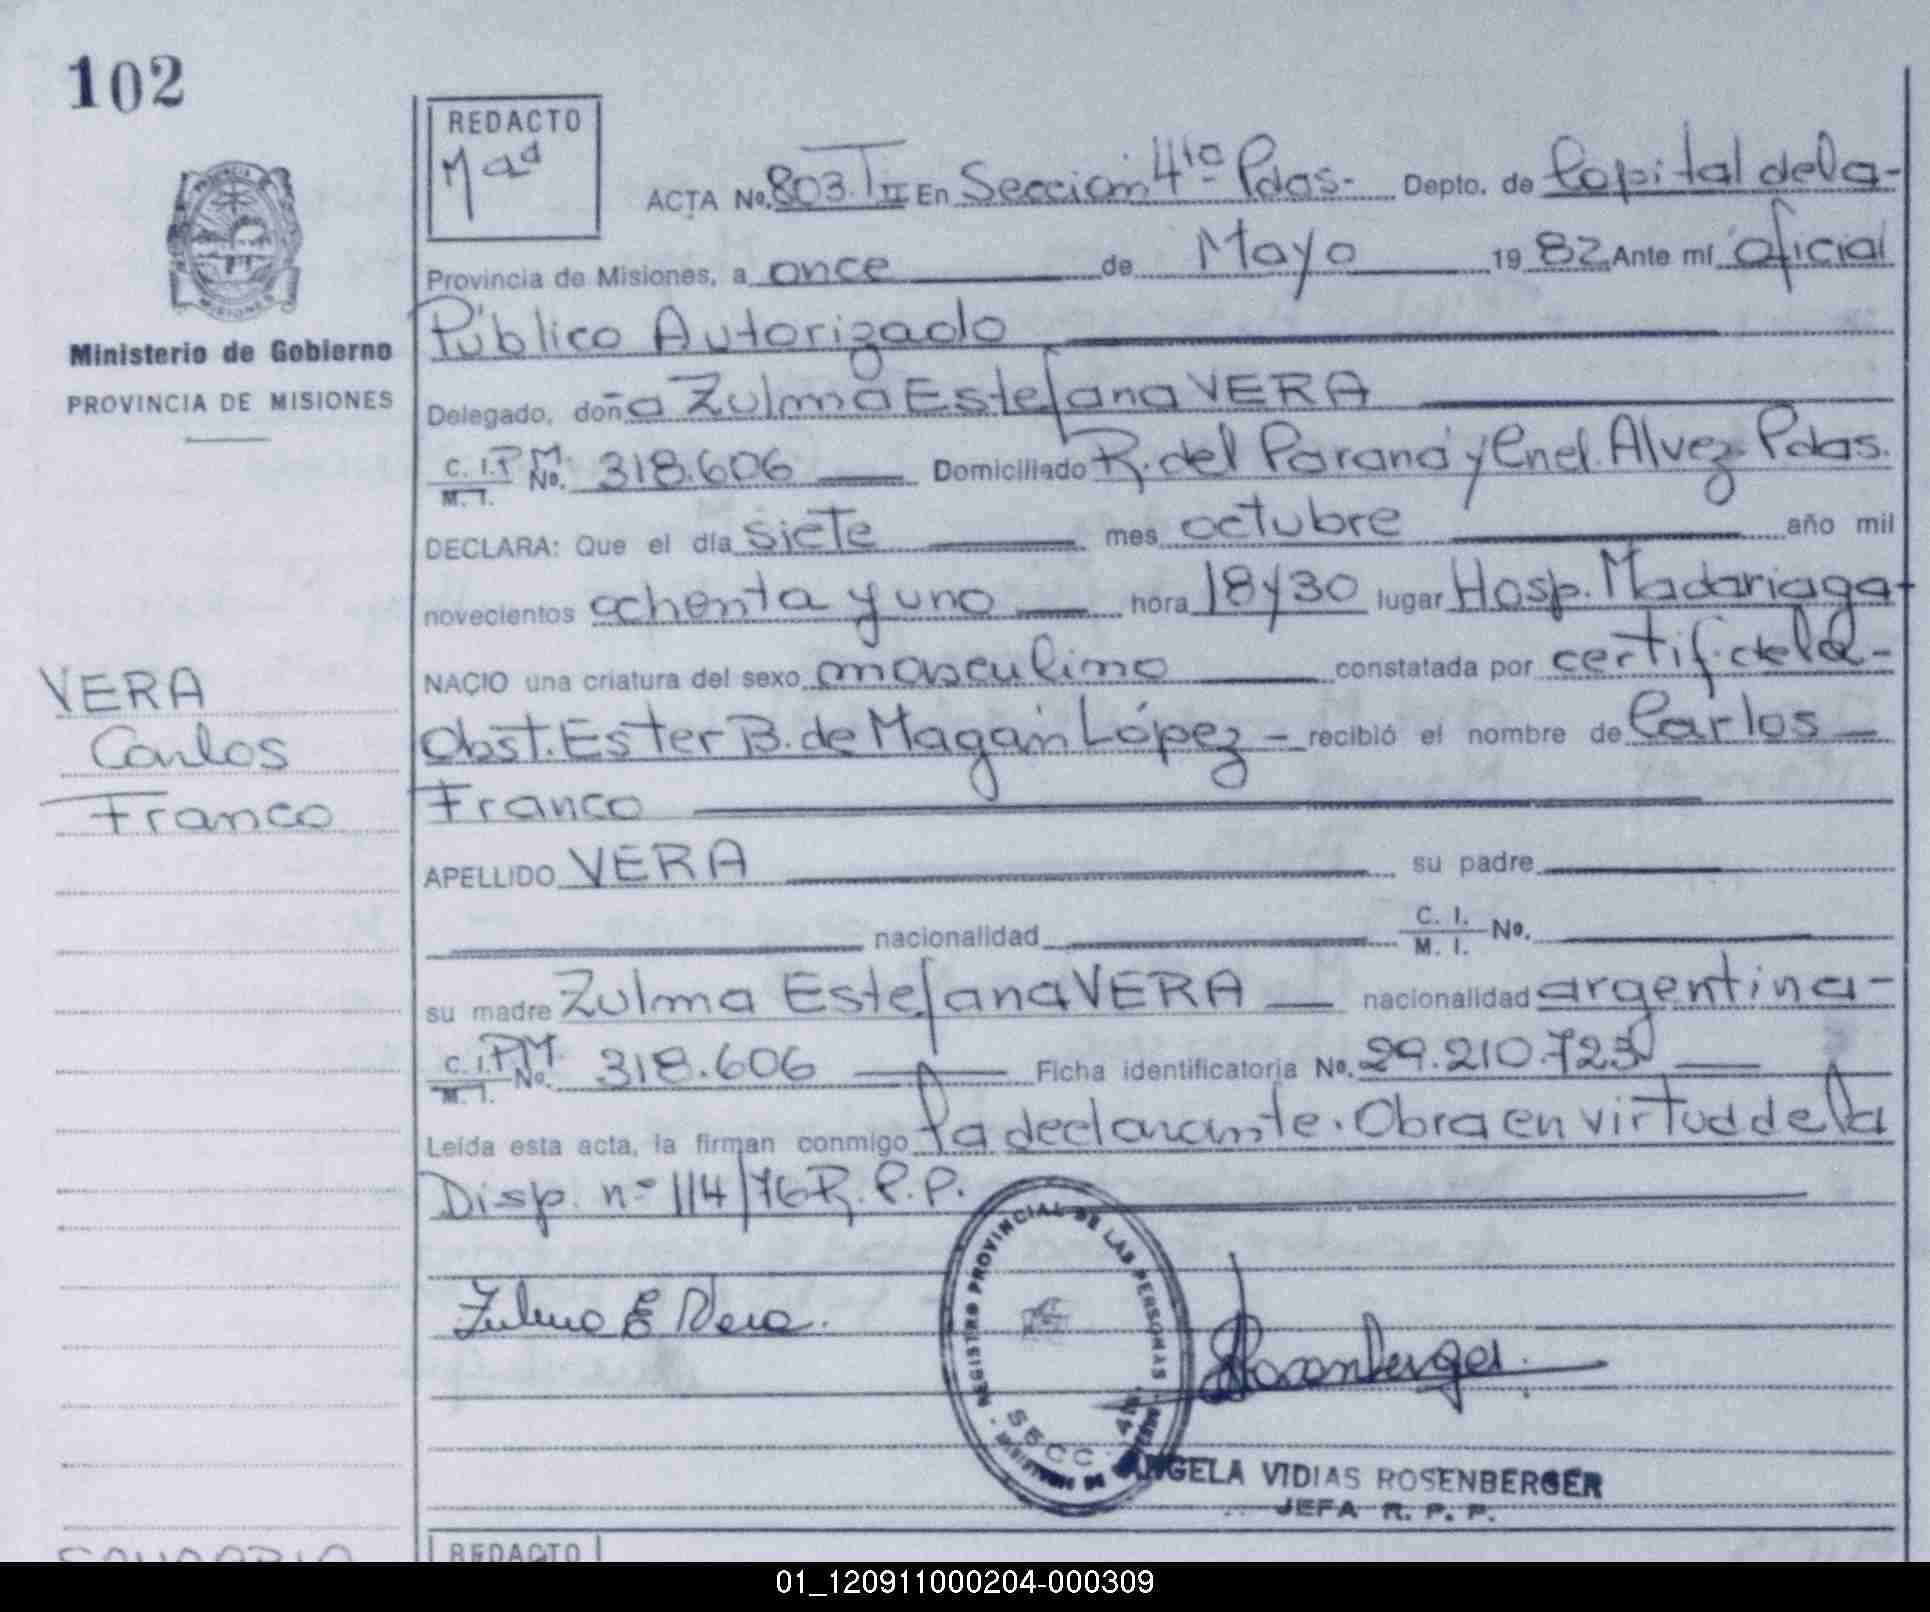 102
REDACTO
Mad
ACTA No. 803. T II En Sección 4ta Pdas.- Depto. de Capital de la-
Provincia de Misiones, a once de Mayo 19 82 Ante mí oficial
Público Autorizado
Ministerio de Gobierno
PROVINCIA DE MISIONES
Delegado, doña Zulma Estefana VERA
C. I. P M. No. 318.606 Domiciliado R. del Paraná y Cnel. Alvez Pdas.
M. I.
DECLARA: Que el día siete mes octubre año mil
novecientos ochenta y uno hora 18 y 30 lugar Hosp. Madariaga-
NACIO una criatura del sexo masculino constatada por certif. de la-
Obst. Ester B. de Magan López- recibió el nombre de Carlos
Franco
VERA
Carlos
Franco
APELLIDO VERA su padre
nacionalidad C. I. No.
M. I.
su madre Zulma Estefana VERA nacionalidad argentina-
C. I. PM No. 318.606 Ficha identificatoria No. 29.210.723
M. I.
Leída esta acta, la firman conmigo la declarante. Obra en virtud de la
Disp. nº 114/76 R. P. P.
Zulma E Vera.
REGISTRO PROVINCIAL DE LAS PERSONAS
SECC. 4ta.
Rosenberger
ANGELA VIDIAS ROSENBERGER
JEFA R. P. P.
REDACTO
01_120911000204-000309